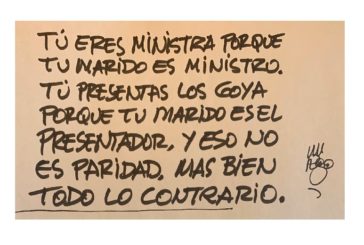 TÚ ERES MINISTRA PORQUE
TU MARIDO ES MINISTRO.
TÚ PRESENTAS LOS GOYA
PORQUE TU MARIDO ES EL
PRESENTADOR, Y ESO NO
ES PARIDAD. MAS BIEN
TODO LO CONTRARIO.